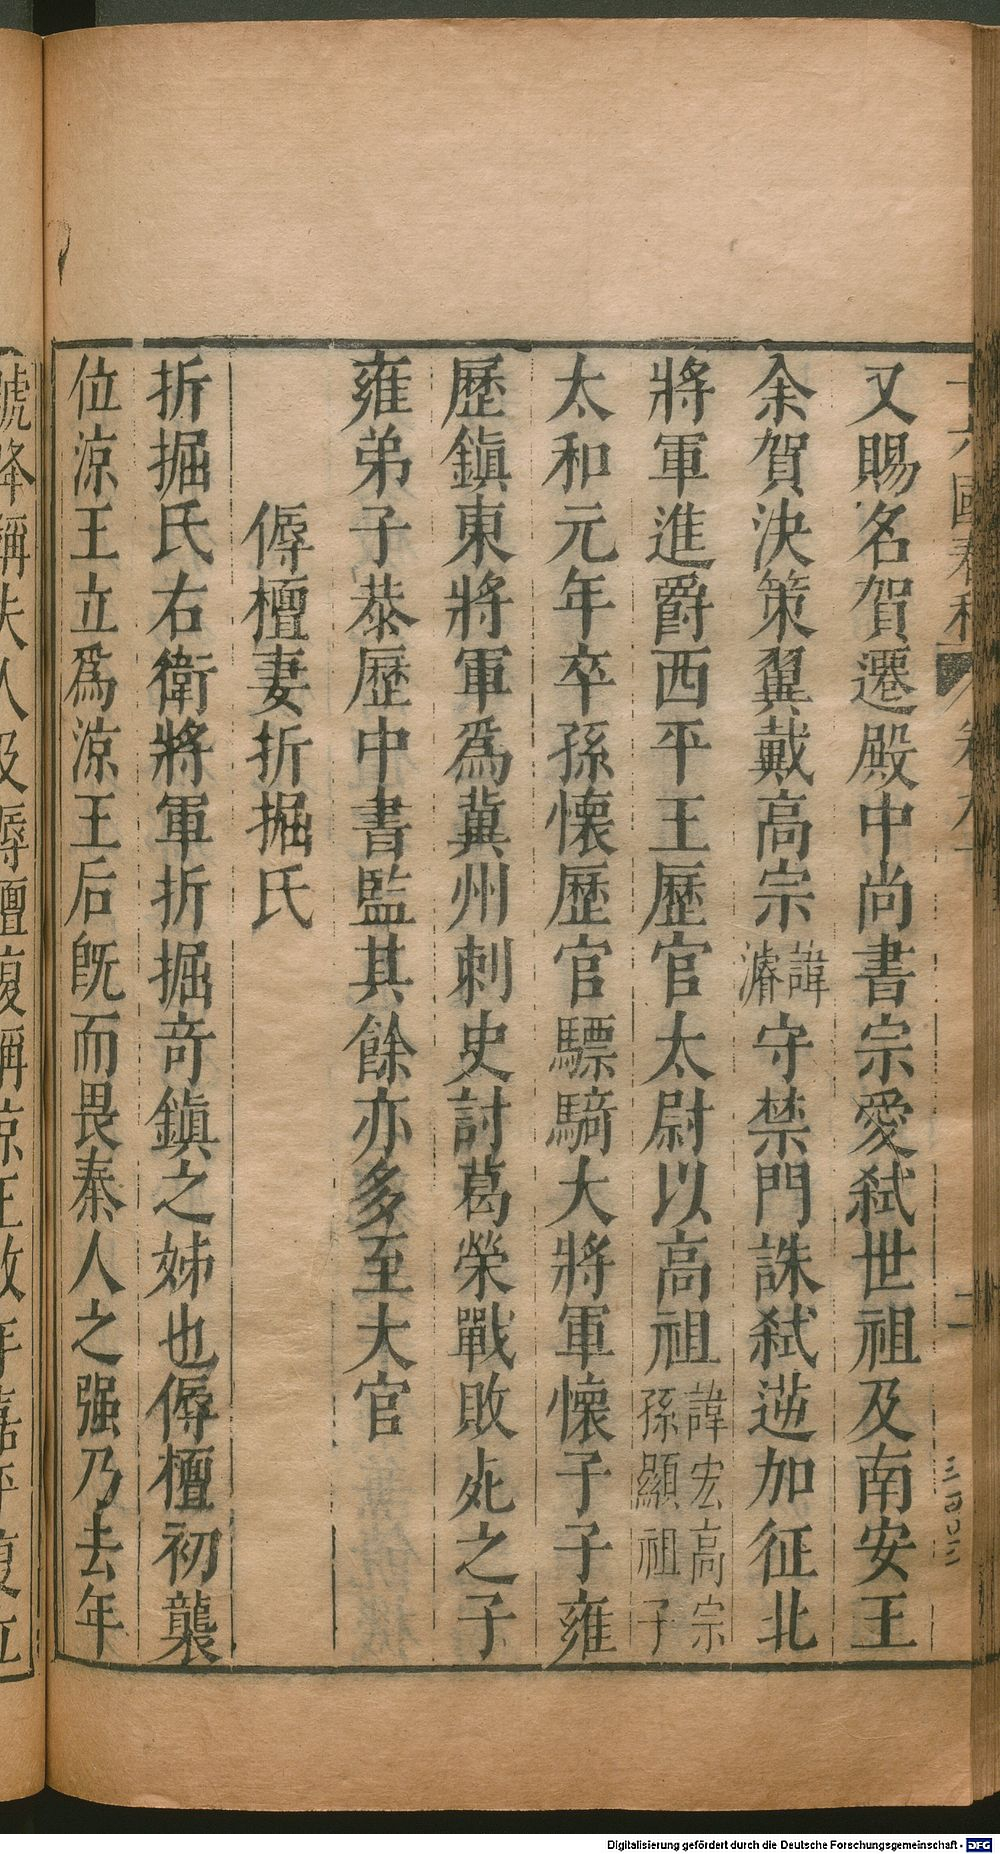 又賜名賀遷殿中尚書宗愛弑世祖及南安王
余賀決策翼戴高宗諱濬守禁門誅弑逆加征北
將軍進爵西平王歷官太尉以高祖諱宏高宗孫顯祖子
太和元年卒孫懷歷官驃騎大將軍懷子子雍
歷鎮東將軍為冀州刺史討葛榮戰敗死之子
雍弟子恭歷中書監其餘亦多至大官
傉檀妻折掘氏
折掘氏右衛將軍折掘奇鎮之姊也傉檀初襲
位涼王立為涼王后旣而畏秦人之强乃去年
號降稱夫人及傉檀復稱涼王改年嘉平復立
十六國春秋 卷九十 二
三百〇三
Digitalisierung gefördert durch die Deutsche Forschungsgemeinschaft - DFG